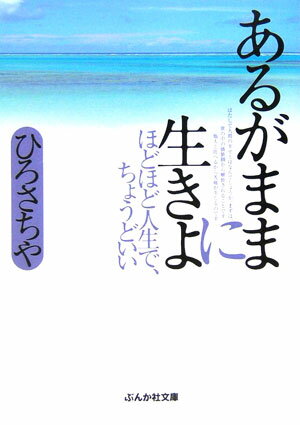 あるがまま
に
生きよ
ほどほど人生で、
ちょうどいい
ひろさちや
ぶんか社文庫